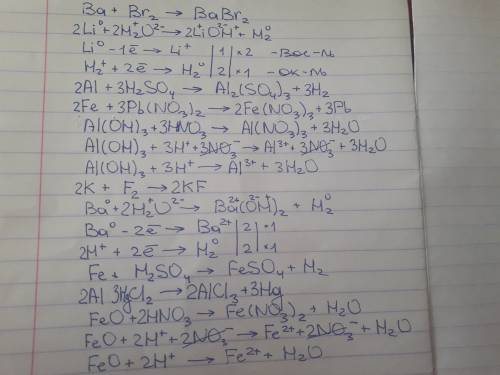 Ba + Br₂ → BaBr₂
2Li⁰ + 2H₂⁺O²⁻ → 2Li⁺OH⁺ + H₂⁰
Li⁰ - 1ē → Li⁺ | 1 | ×2 - Вос-ль
H₂⁺ + 2ē → H₂⁰ | 2 | ×1 - Ок-ль
2Al + 3H₂SO₄ → Al₂(SO₄)₃ + 3H₂
2Fe + 3Pb(NO₃)₂ → 2Fe(NO₃)₃ + 3Pb
Al(OH)₃ + 3HNO₃ → Al(NO₃)₃ + 3H₂O
Al(OH)₃ + 3H⁺ + 3NO₃⁻ → Al³⁺ + 3NO₃⁻ + 3H₂O
Al(OH)₃ + 3H⁺ → Al³⁺ + 3H₂O
2K + F₂ → 2KF
Ba⁰ + 2H₂⁺O²⁻ → Ba²⁺(O²⁻H⁺)₂ + H₂⁰
Ba⁰ - 2ē → Ba²⁺ | 2 | ×1
2H⁺ + 2ē → H₂⁰ | 2 | ×1
Fe + H₂SO₄ → FeSO₄ + H₂
2Al 3HgCl₂ → 2AlCl₃ + 3Hg
FeO + 2HNO₃ → Fe(NO₃)₂ + H₂O
FeO + 2H⁺ + 2NO₃⁻ → Fe²⁺ + 2NO₃⁻ + H₂O
FeO + 2H⁺ → Fe²⁺ + H₂O